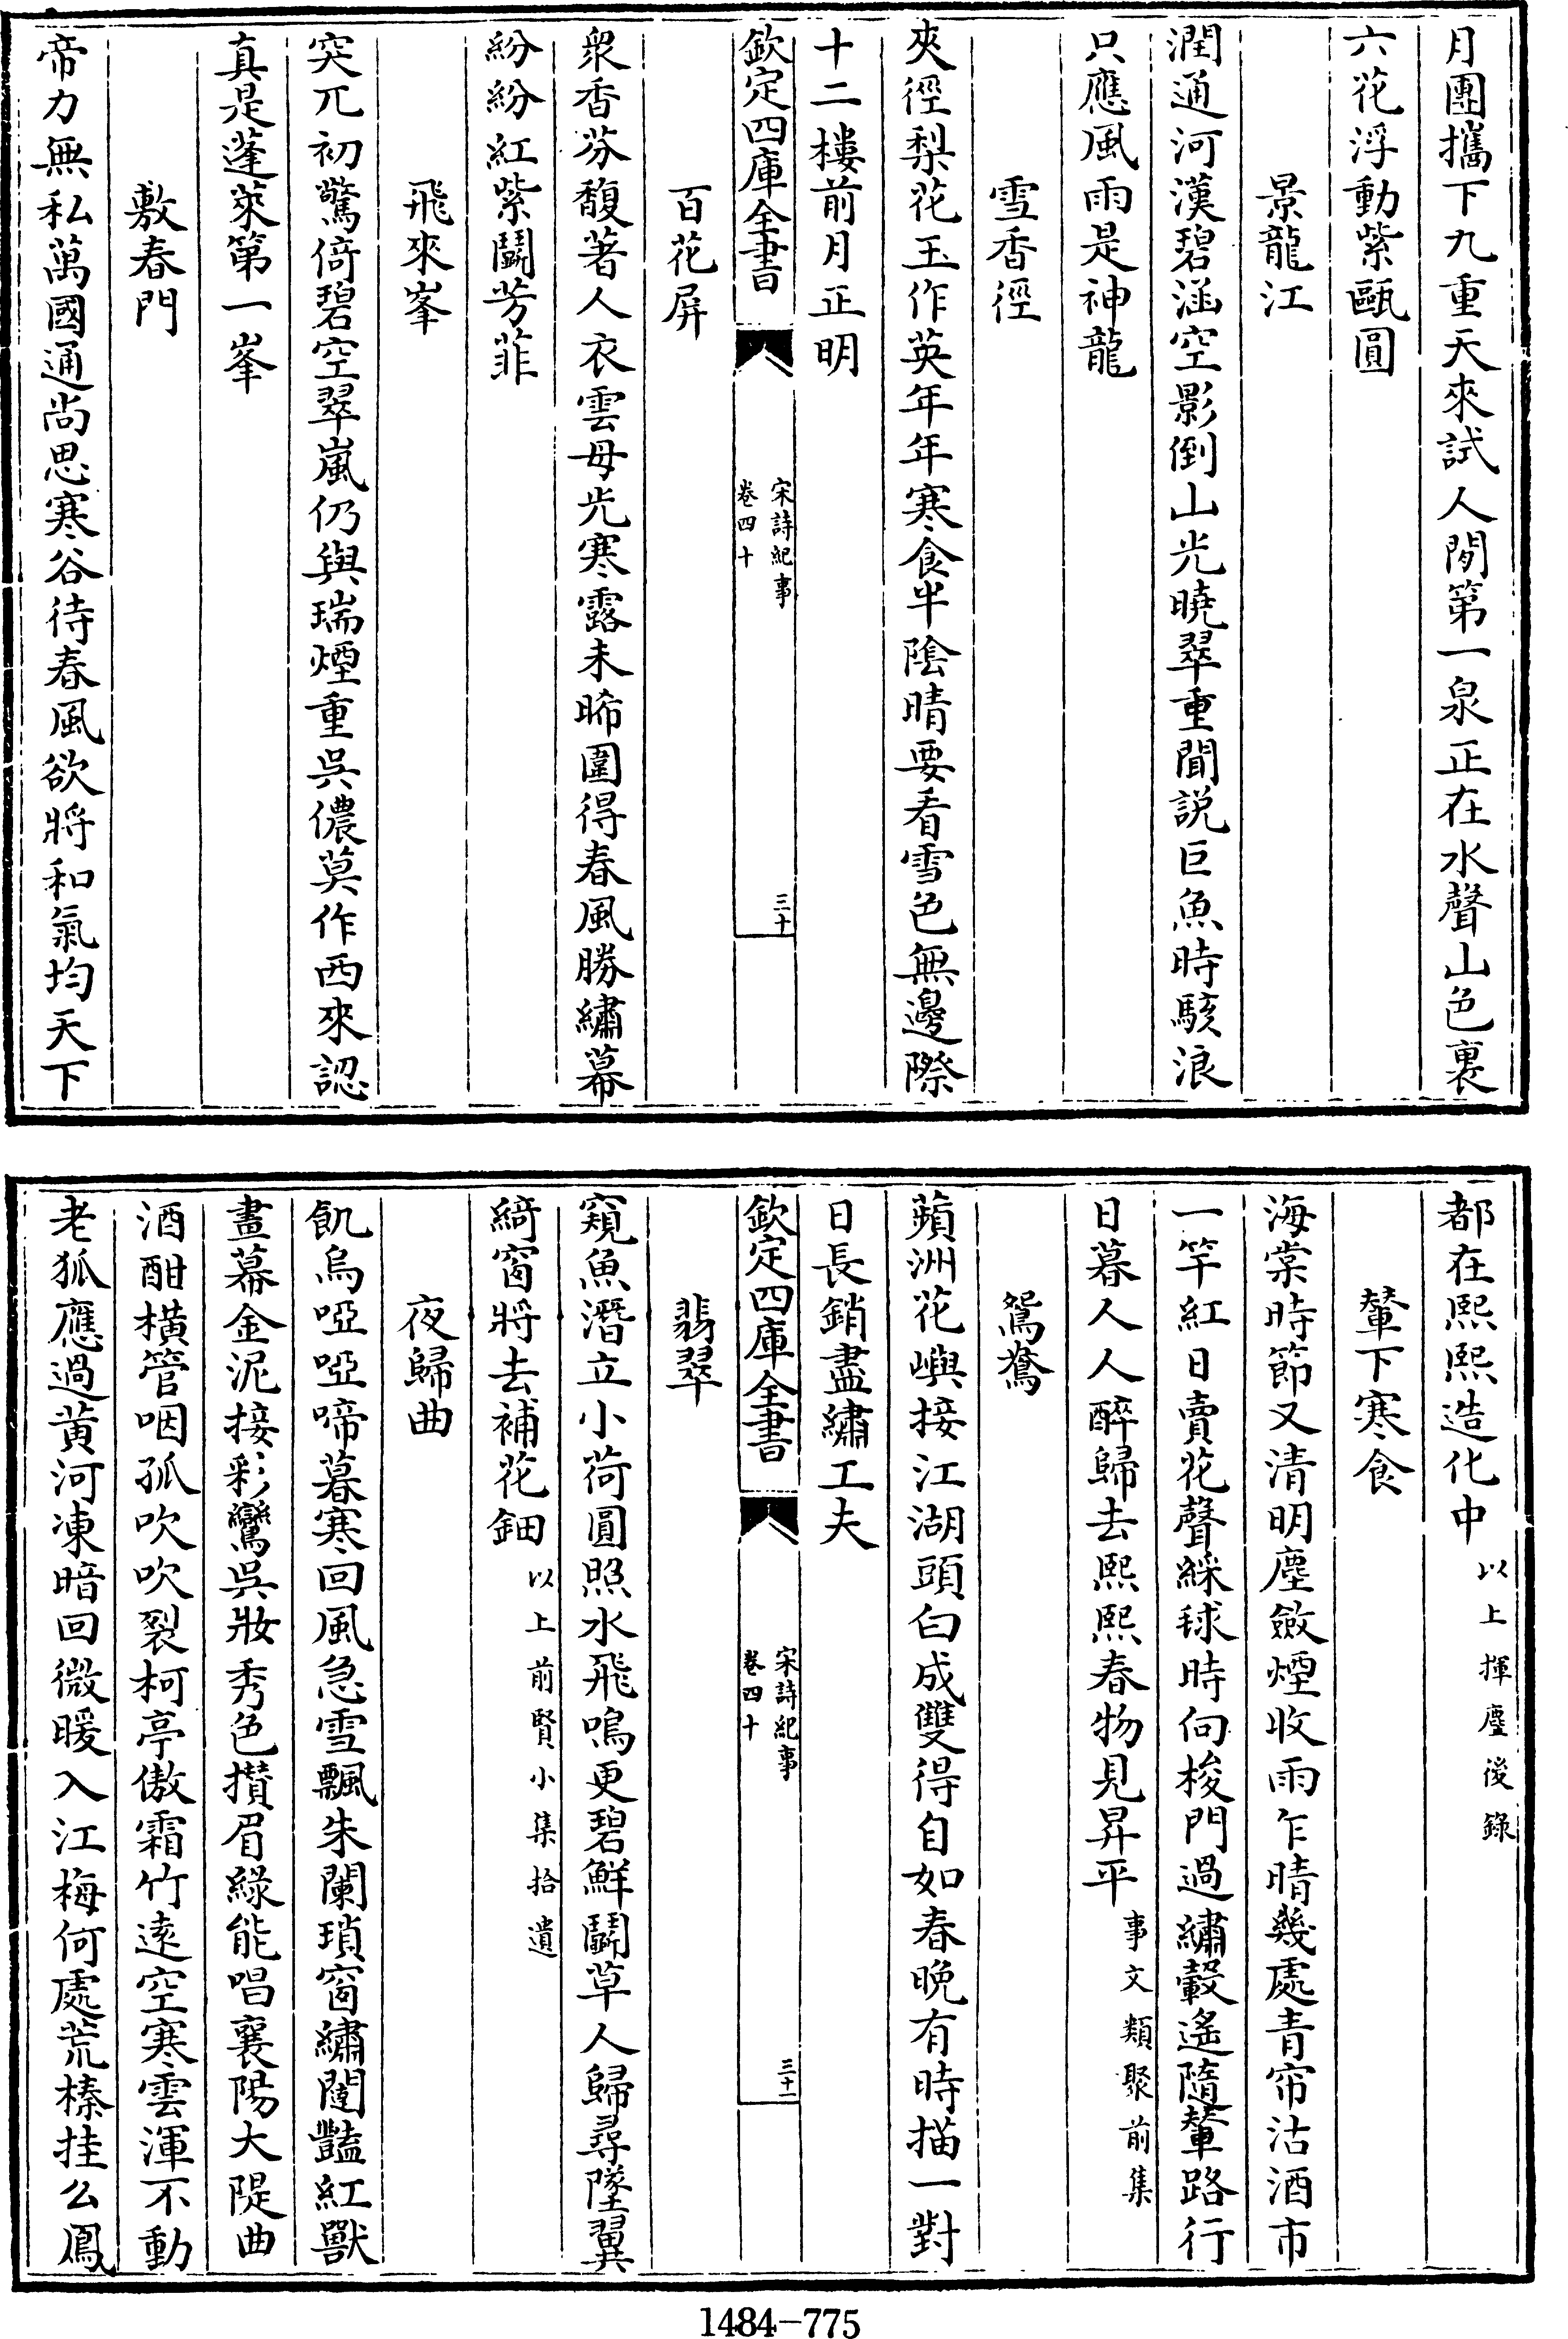 月團攜下九重天來試人閒第一泉正在水聲山色裏
六花浮動紫甌圓
景龍江
潤通河漢碧涵空影倒山光曉翠重聞説巨魚時駭浪
只應風雨是神龍
雪香徑
夾徑梨花玉作英年年寒食半陰晴要看雪色無邊際
十二樓前月正明
欽定四庫全書
宋詩紀事
卷四十
三十
百花屏
衆香芬馥著人衣雲母光寒露未晞圍得春風勝繡幕
紛紛紅紫鬭芳菲
飛來峯
突兀初驚倚碧空翠嵐仍與瑞煙重吳儂莫作西來認
真是蓬萊第一峯
敷春門
帝力無私萬國通尚思寒谷待春風欲將和氣均天下
都在熙熙造化中以上揮塵後錄
輦下寒食
海棠時節又清明塵斂煙收雨乍晴幾處青帘沽酒市
一竿紅日賣花聲綵毬時向梭門過繡轂遙隨輦路行
日暮人人醉歸去熙熙春物見昇平事文類聚前集
鴛鴦
蘋洲花嶼接江湖頭白成雙得自如春晚有時描一對
日長銷盡繡工夫
欽定四庫全書
宋詩紀事
卷四十
三十一
翡翠
窺魚潛立小荷圓照水飛鳴更碧鮮鬭草人歸尋墜翼
綺窗將去補花鈿以上前賢小集拾遺
夜歸曲
飢烏啞啞啼暮寒回風急雪飄朱闌瑣窗繡閣豔紅獸
畫幕金泥接彩鸞吳妝秀色攢眉綠能唱襄陽大隄曲
酒酣橫管咽孤吹吹裂柯亭傲霜竹遠空寒雲渾不動
老狐應過黃河凍暗回微暖入江梅何處荒榛挂么鳳
1484-775